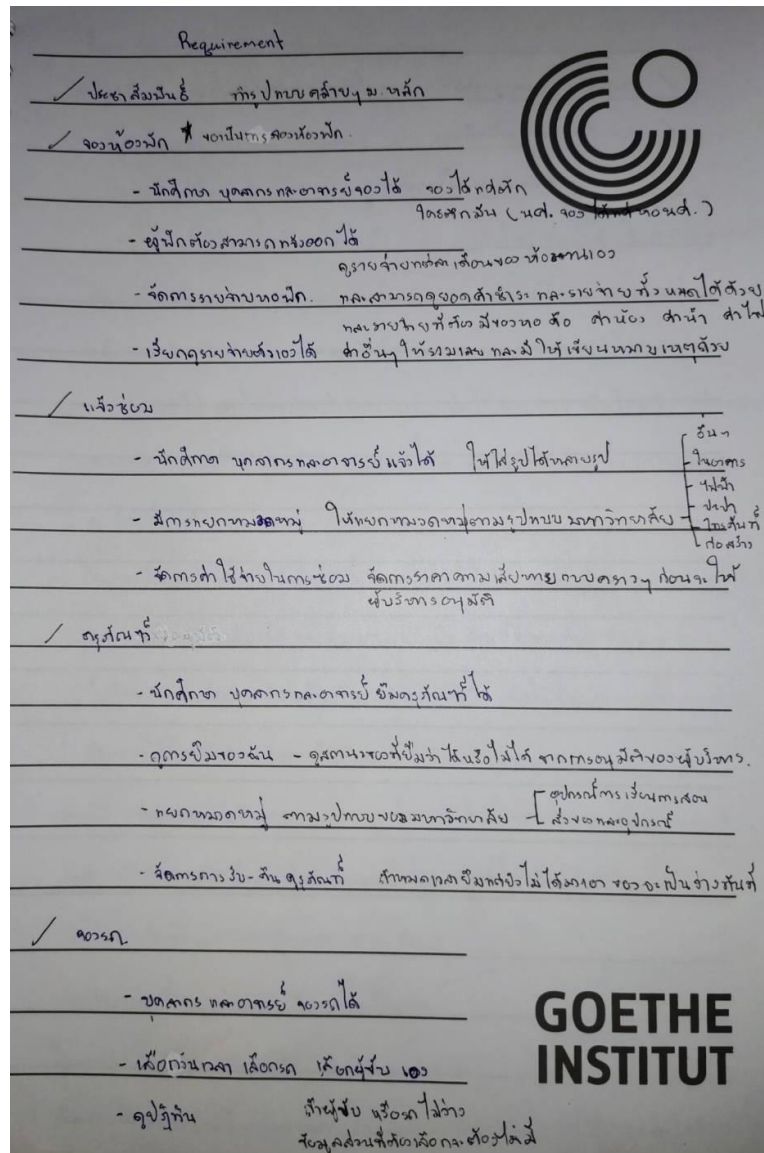 Requirement
ประชาสัมพันธ์ ทำรูปแบบคล้ายๆ ม.หลัก
จองห้องพัก * ขอเป็นการจองห้องพัก.
- นักศึกษา บุคลากรและอาจารย์จองได้ จองได้แค่ตึก
ใครตึกมัน (นศ. จองได้แค่หอนศ.)
- ผู้พักต้องสามารถแจ้งออกได้
ดูรายจ่ายแต่ละเดือนของห้องตนเอง
- จัดการรายจ่ายหอพัก. และสามารถดูยอดค้างชำระ และรายจ่ายทั้งหมดได้ด้วย
และรายจ่ายที่ต้องมีของหอ คือ ค่าห้อง ค่าน้ำ ค่าไฟ
- เรียกดูรายจ่ายตัวเองได้ ค่าอื่นๆ ให้รวมเลย และมีให้เขียนหมายเหตุด้วย
แจ้งซ่อม
- นักศึกษา บุคลากรและอาจารย์แจ้งได้ ให้ใส่รูปได้หลายรูป
- มีการแยกหมวดหมู่ ให้แยกหมวดหมู่ตามรูปแบบมหาวิทยาลัย
อื่นๆ
ในอาคาร
ไฟฟ้า
ประปา
โทรศัพท์
ก่อสร้าง
- จัดการค่าใช้จ่ายในการซ่อม จัดการราคาความเสียหายแบบคราวๆ ก่อนจะให้
ผู้บริหารอนุมัติ
ครุภัณฑ์
- นักศึกษา บุคลากรและอาจารย์ ยืมครุภัณฑ์ได้
- ดูการยืมของฉัน - ดูสถานะของที่ยืมว่าได้หรือไม่ได้ จากการอนุมัติของผู้บริหาร.
- แยกหมวดหมู่ ตามรูปแบบของมหาวิทยาลัย
อุปกรณ์การเรียนการสอน
สิ่งของและอุปกรณ์
- จัดการการรับ-คืน ครุภัณฑ์ ถ้าหมดเวลายืมแต่ยังไม่ได้มาเอา ของจะเป็นว่างทันที
จองรถ
- บุคลากร และอาจารย์ จองรถได้
- เลือกวันเวลา เลือกรถ เลือกผู้ขับ เอง
- ดูปฏิทิน ถ้าผู้ขับ หรือรถ ไม่ว่าง
ข้อมูลส่วนที่ต้องเลือกจะต้องไม่มี
GOETHE
INSTITUT